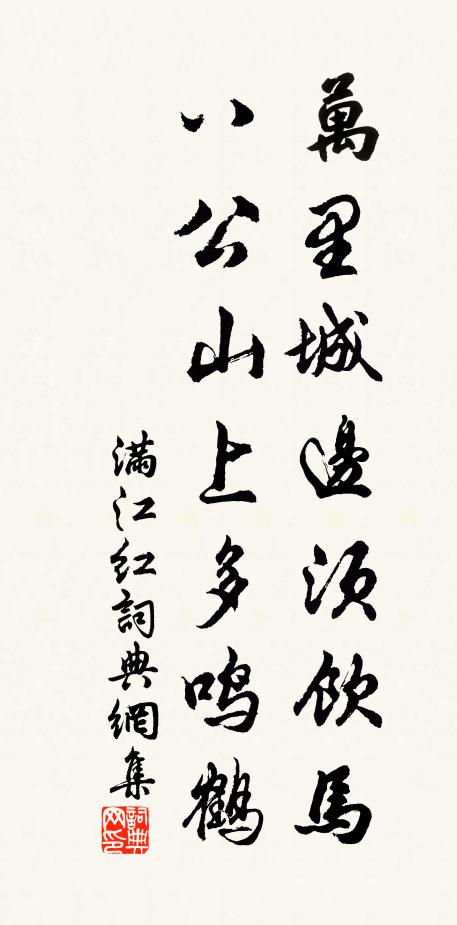 萬里城邊須飲馬
八公山上多鳴鶴
滿江紅詞典網集
詞典
网印